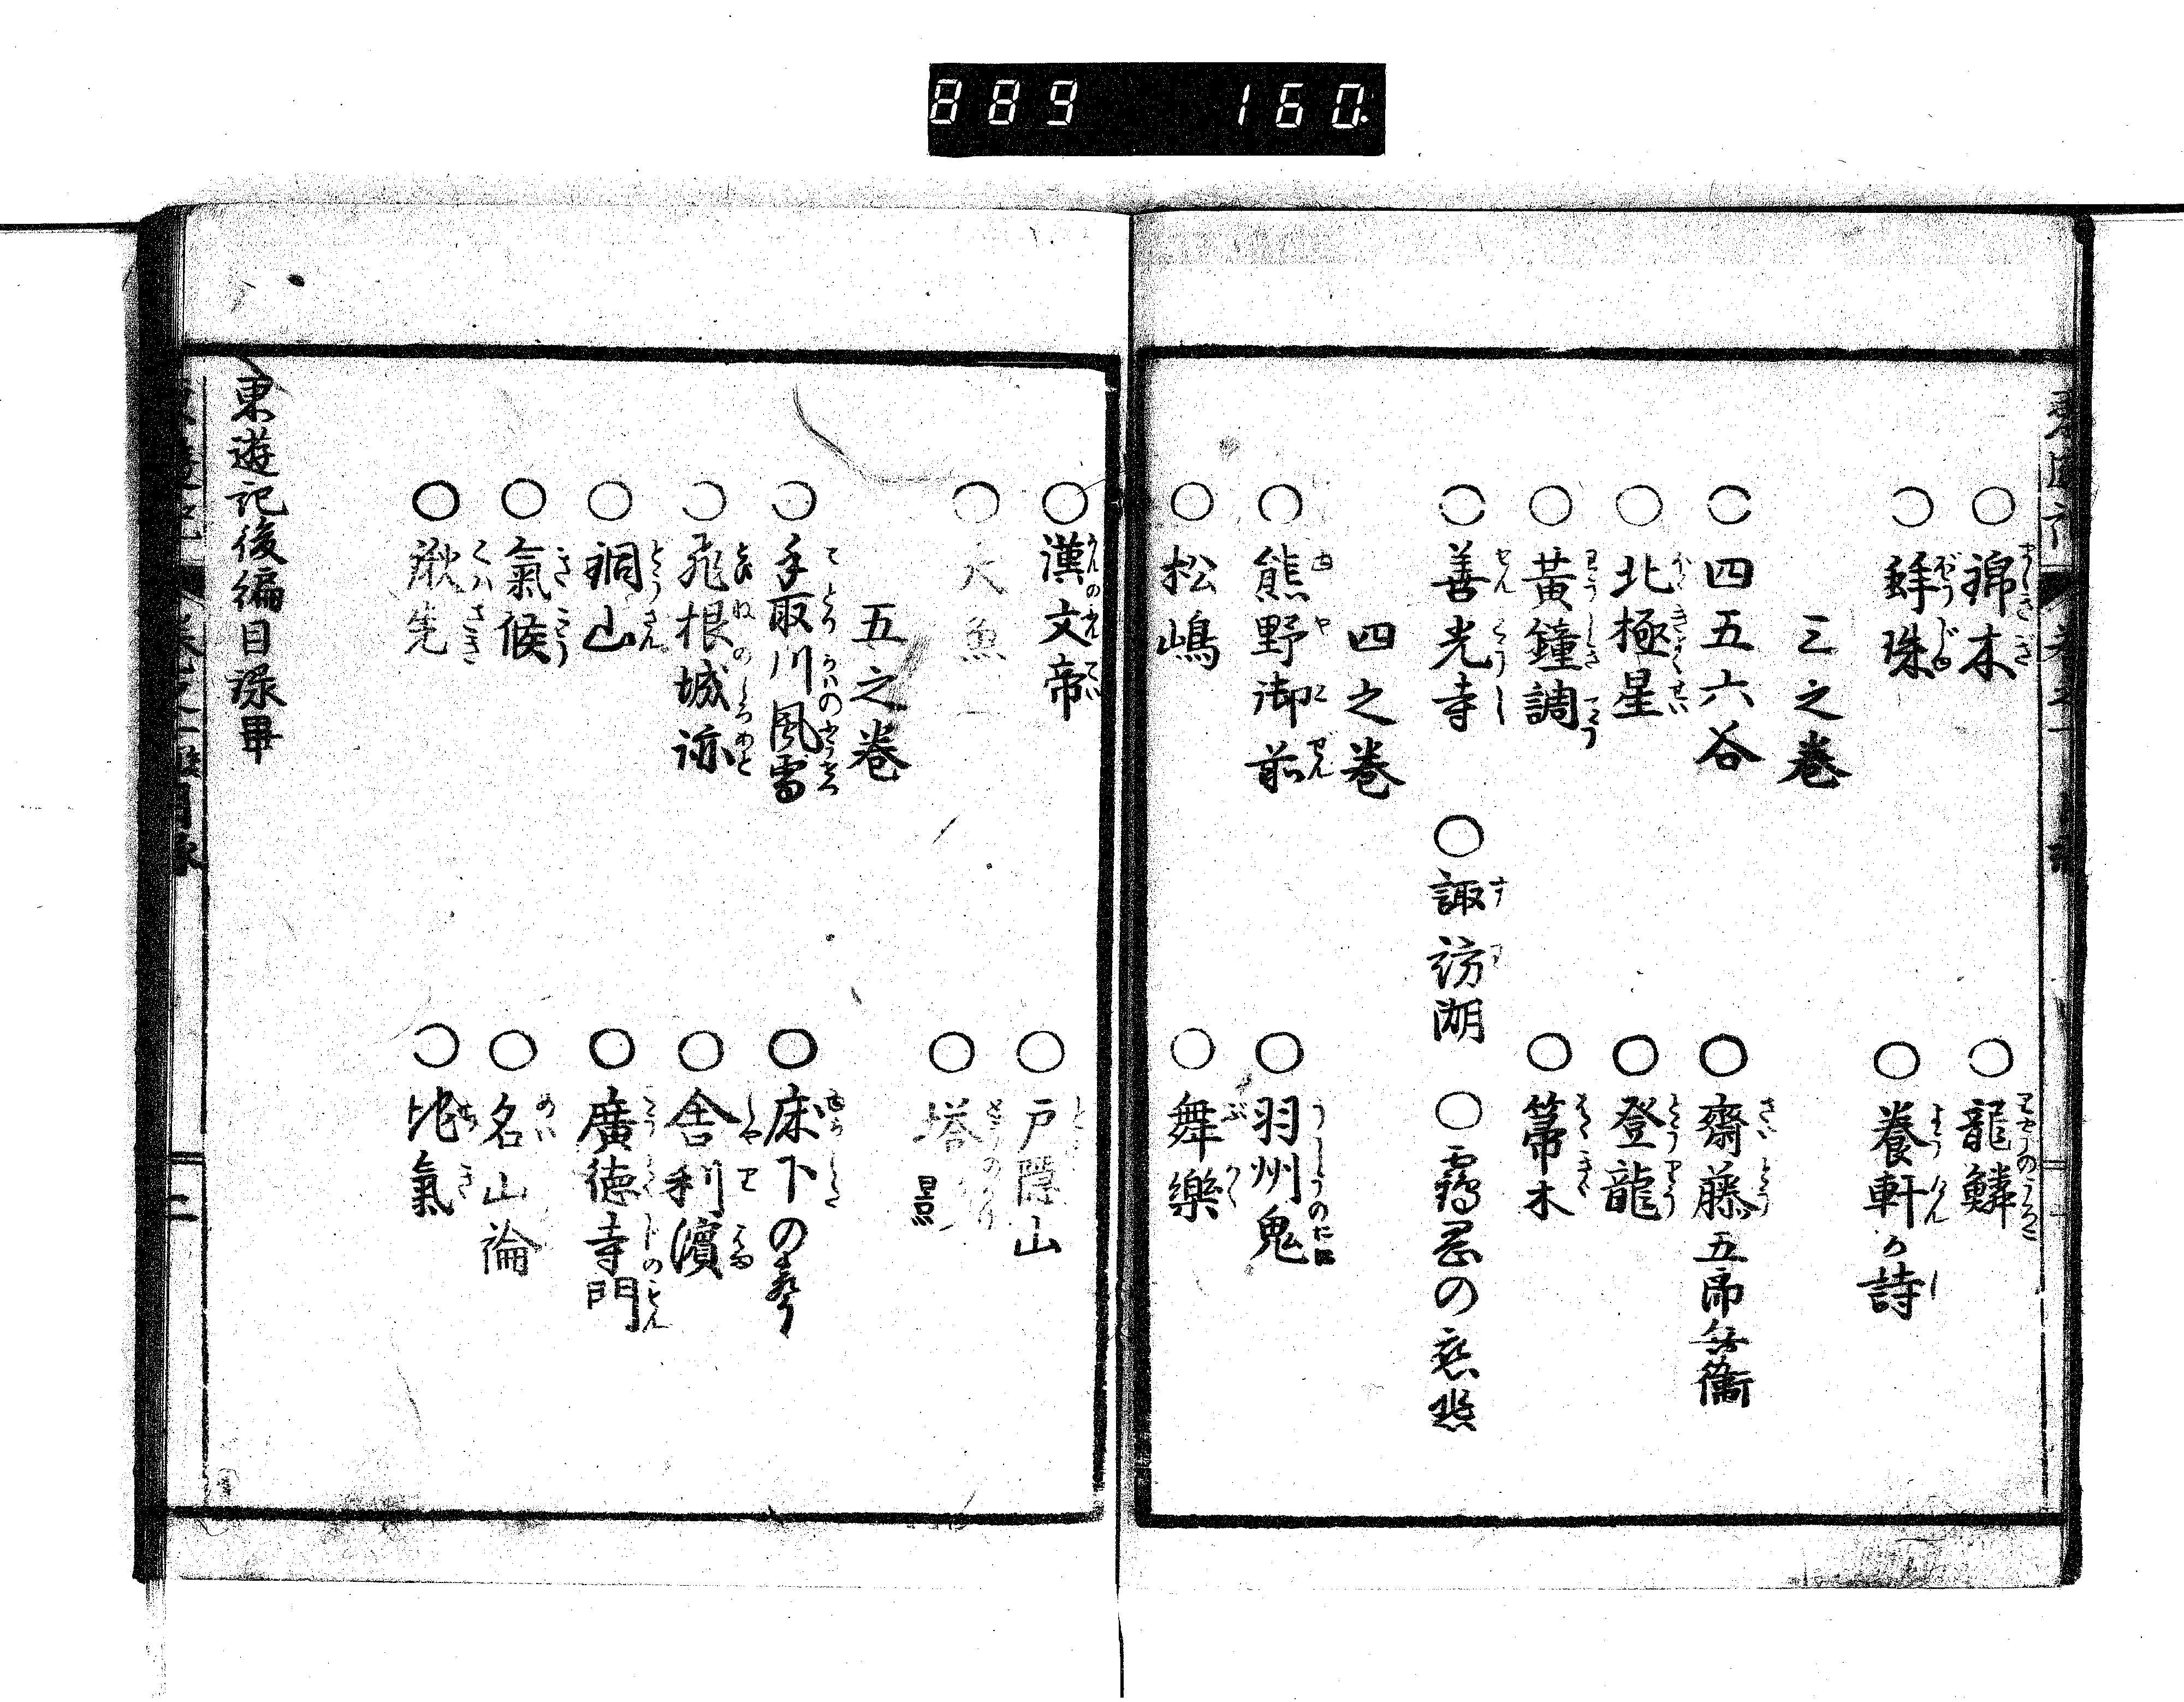 889 160
○錦木
○龍鱗
○蚌珠
○養軒が詩
三之巻
○四五六谷
○齋藤五郎兵衛
○北極星
○登龍
○黃鐘調
○箒木
○善光寺
○諏訪湖
○
四之巻
○熊野御前
○羽州鬼
○松嶋
○舞樂
○漢文帝
○戸隱山
○大魚
○塔影
五之巻
○手取川風雪
○床下の聲
○飛根城跡
○舎利濱
○銅山
○廣徳寺門
○氣候
○名山論
○湫先
○地氣
東遊記後編目録畢
二